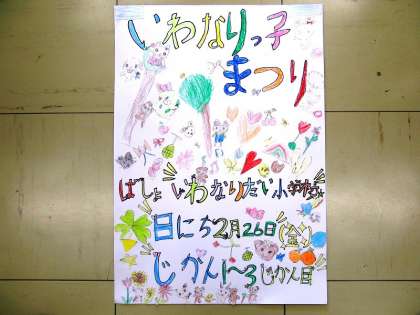 いわなりっ子
まつり
ばしょ いわなりだい小学校
日にち2月26日(金)
じかん1〜3じかん目